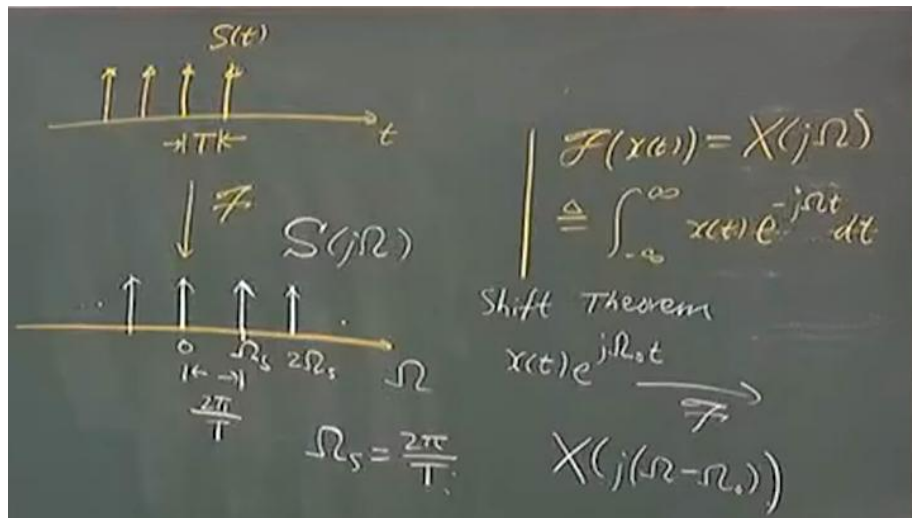 S(t)
t
→|T|←
ℱ
S(jΩ)
...
0 Ω_s 2Ω_s Ω
|← →|
2π/T
Ω_s = 2π/T
ℱ(x(t)) = X(jΩ)
≜ ∫_{-∞}^{∞} x(t) e^{-jΩt} dt
Shift Theorem
x(t) e^{jΩ₀t}
ℱ
X(j(Ω-Ω₀))